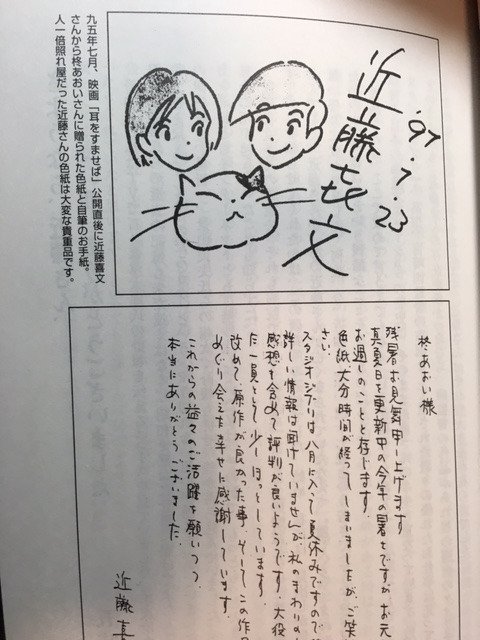 '97.7.23
近藤喜文
九五年七月、映画「耳をすませば」公開直後に近藤喜文
さんから柊あおいさんに贈られた色紙と自筆のお手紙。
人一倍照れ屋だった近藤さんの色紙は大変な貴重品です。
柊あおい様
残暑お見舞申し上げます
真夏日を更新中の今年の暑さですが お元
お過しのことと存じます.
色紙大分時間が経ってしまいましたが、ご笑
さい.
スタジオジブリは八月に入って夏休みですので
詳しい情報は聞けていませんが、私のまわりの
感想を含めて評判が良いようです. 大役
た一員として少しほっとしています.
改めて原作が良かった事、そしてこの作
めぐり会えた幸せに感謝しています.
これからの益々のご活躍を願いつつ.
本当にありがとうございました.
近藤喜